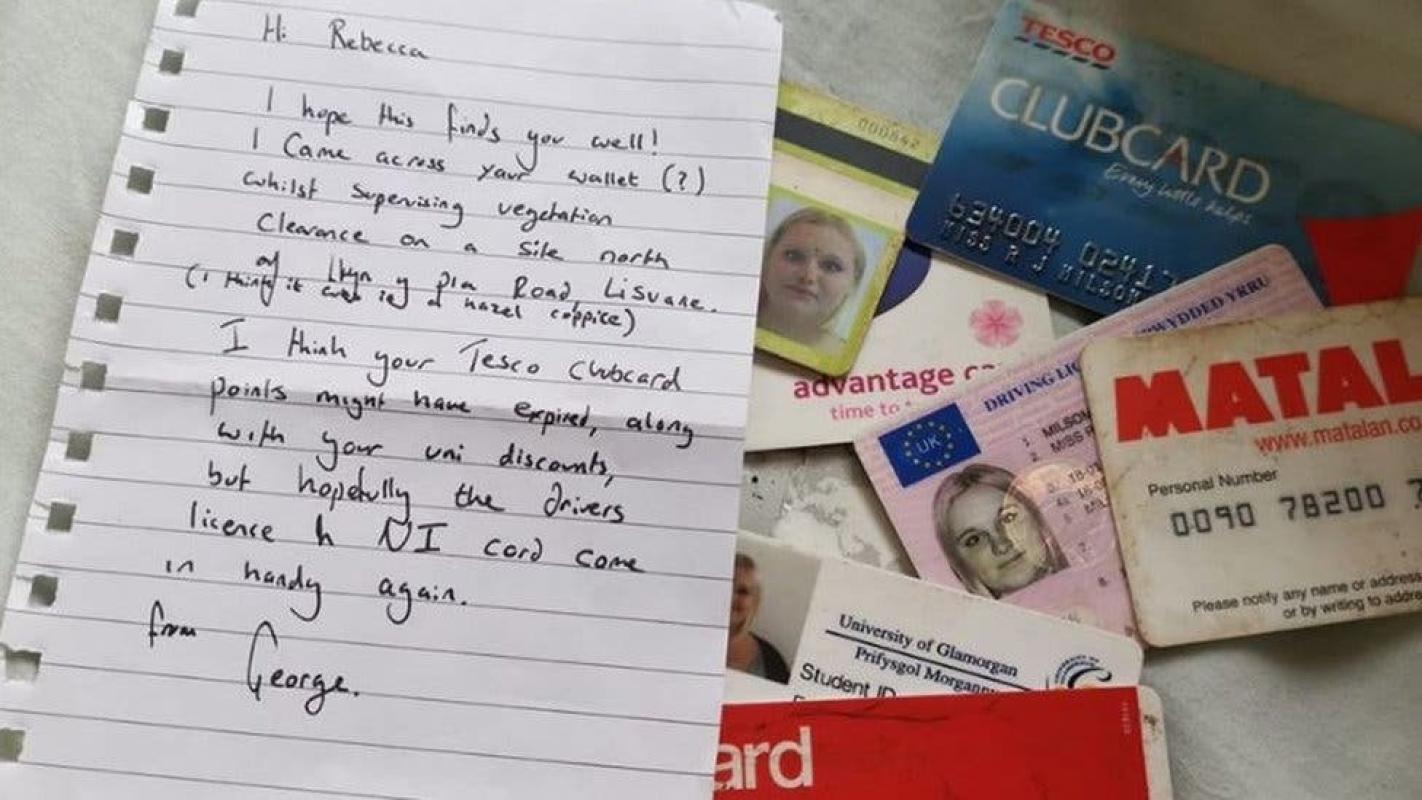 Hi Rebecca
I hope this finds you well!
I Came across your wallet (?)
whilst supervising vegetation
Clearance on a site north
of Llwyn y Pia Road, Lisvane.
(i think it was in a hazel coppice)
I think your Tesco Clubcard
points might have expired, along
with your uni discounts,
but hopefully the drivers
licence & NI card come
in handy again.
from
George.
000842
TESCO
CLUBCARD
Every little helps
634004 02417
MISS R J MILSON
advantage ca
time to
WYDDED YRRU
DRIVING LIC
UK
1. MILSON
2. MISS R
3. 18-0
4a.
5. MIL
7.
8.
MATAL
www.matalan.co
Personal Number
0090 78200 7
Please notify any name or address
or by writing to addre
University of Glamorgan
Prifysgol Morgannw
Student ID
ard